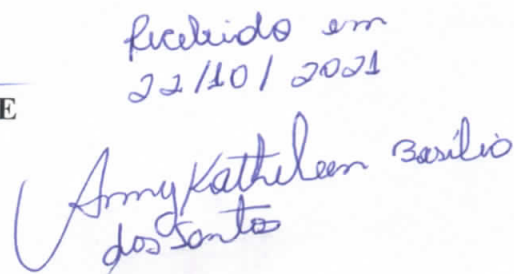 Recebido em
22/10/2021
E
Anny Katheleen Basílio
dos Santos